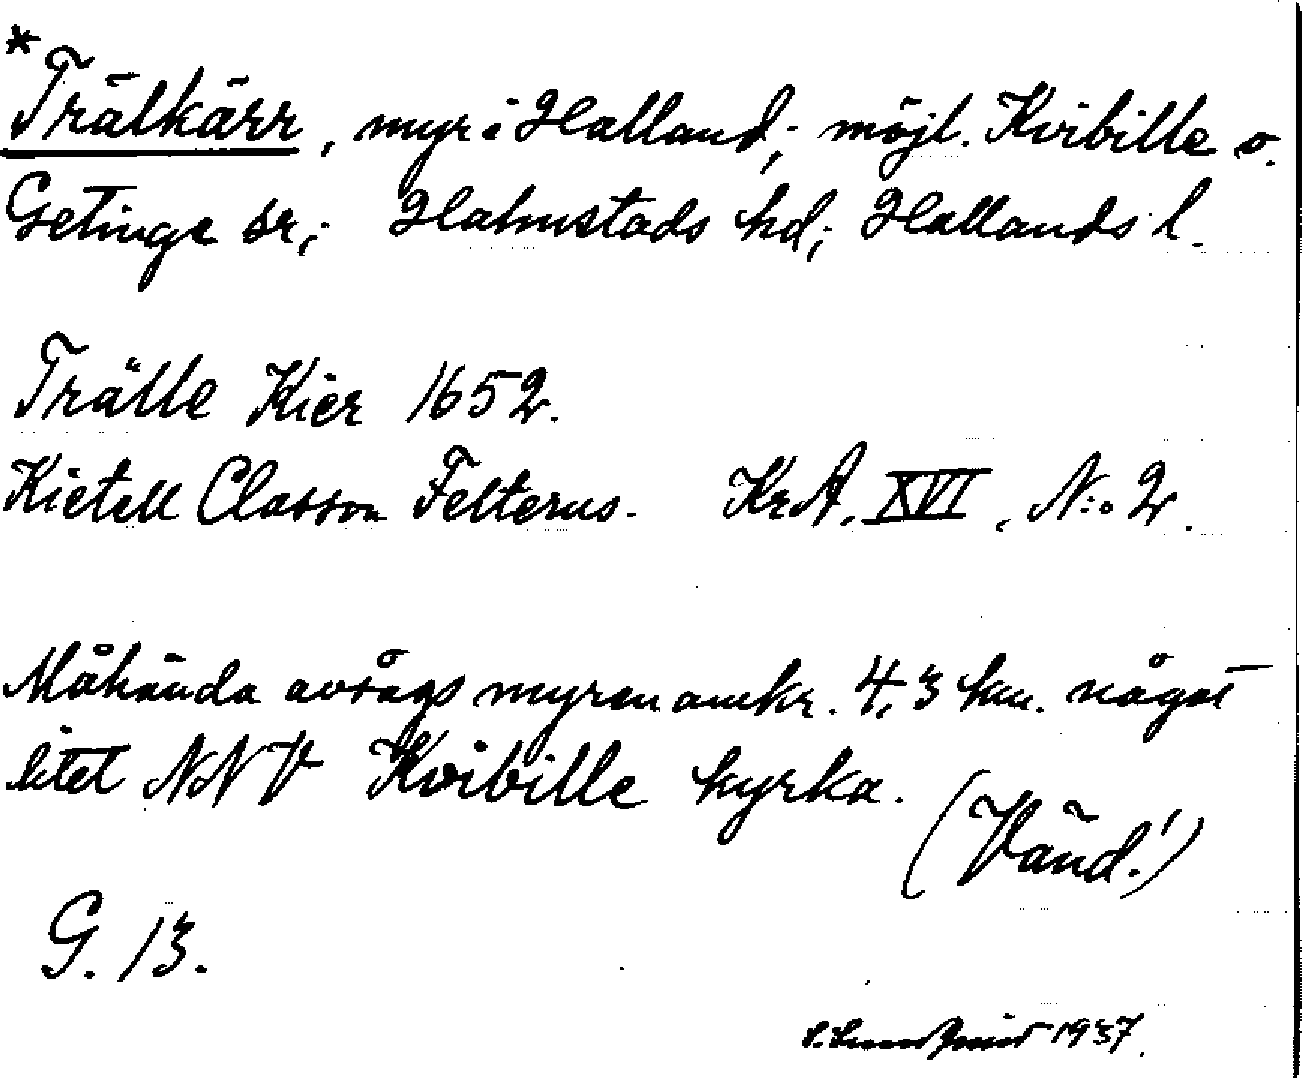 *Trälkärr, myr i Halland; möjl. Kvibille o.
Getinge sr; Halmstads hd; Hallands l.
Trälle Kier 1652.
Kietell Classon Felterus. Kr.A. XVI, N:o 2.
Måhända avsågs myren omkr. 4,3 km. något
litet NNV Kvibille kyrka.
(Vänd!)
G. 13.
1937.